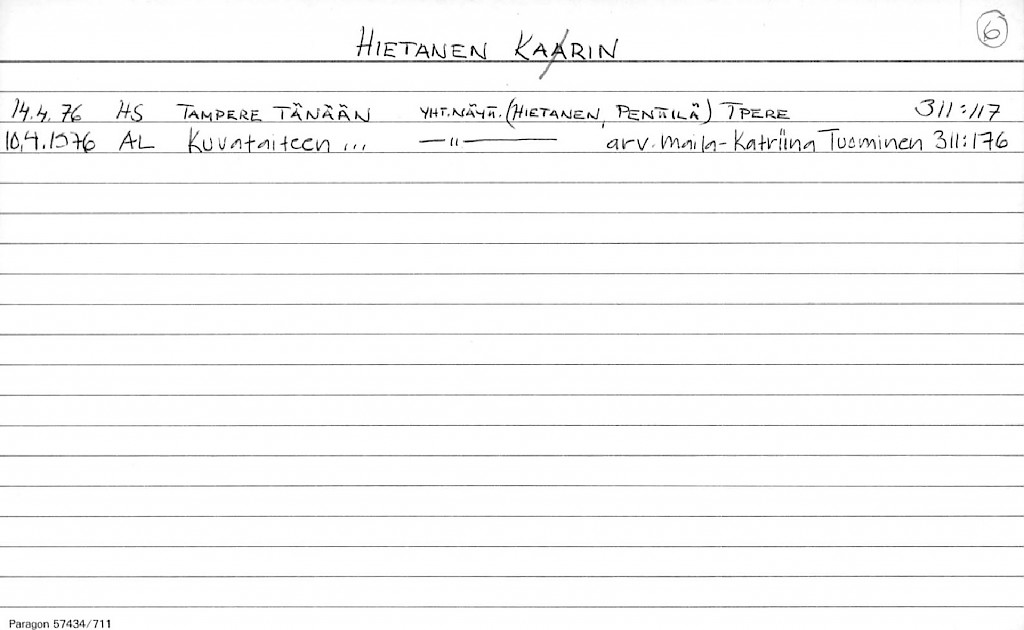 6
HIETANEN KAARIN
14.4.76 HS TAMPERE TÄNÄÄN YHT.NÄYT. (HIETANEN, PENTTILÄ) TPERE 311:117
10.4.1976 AL Kuvataiteen ... —"— arv. Maila-Katriina Tuominen 311:176
Paragon 57434/711